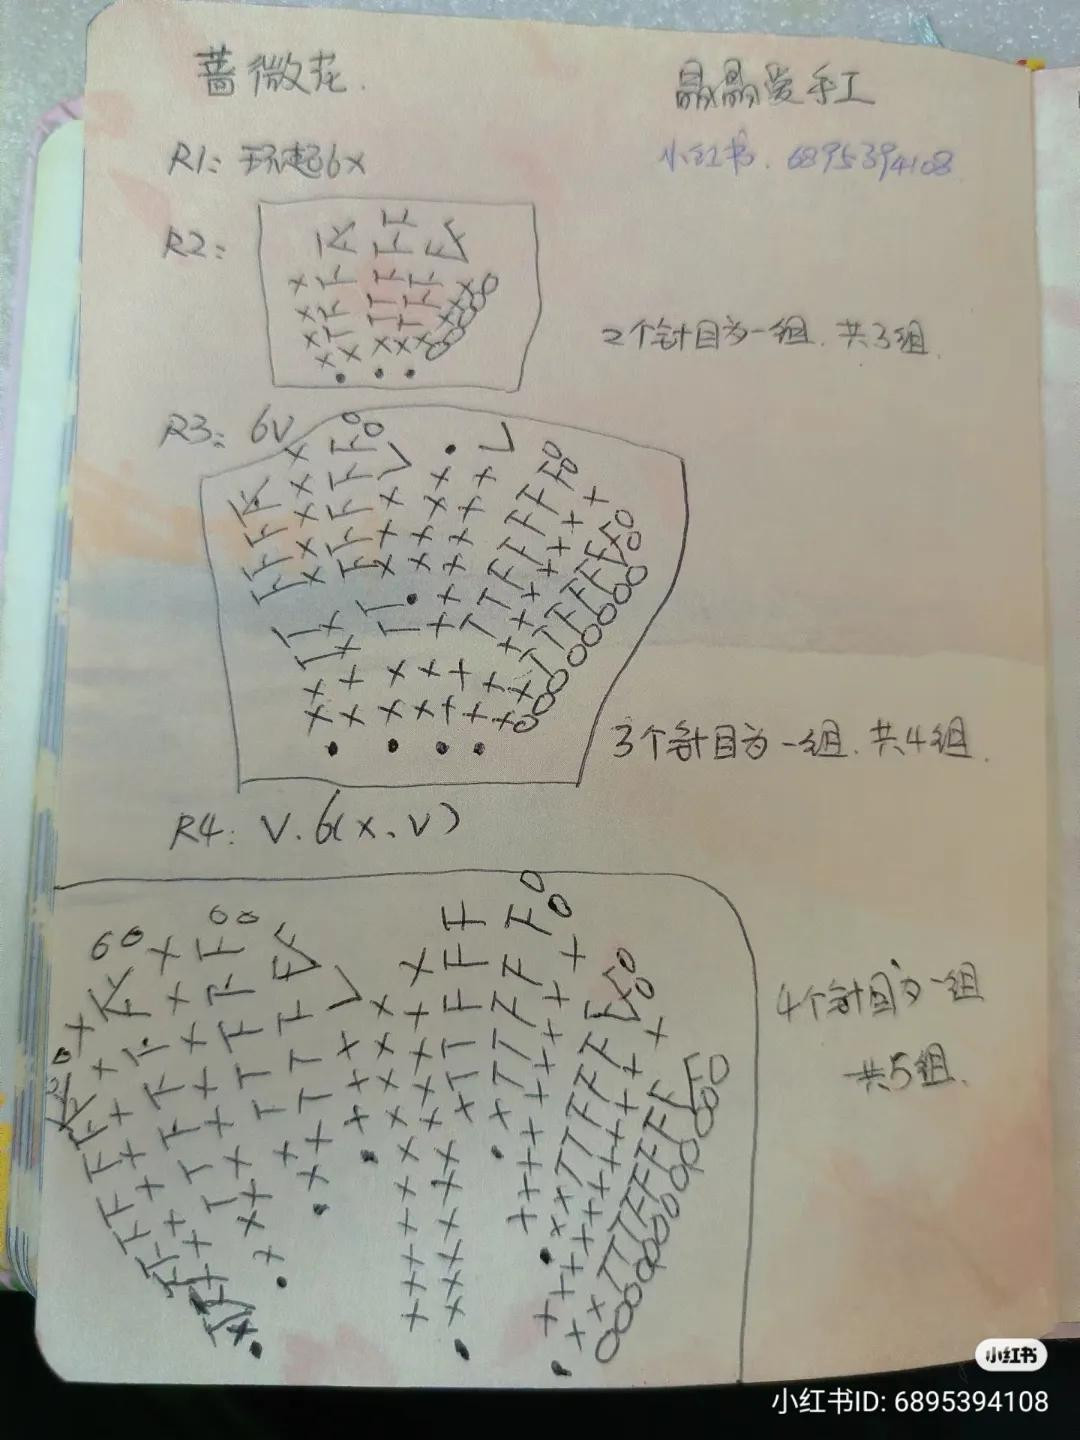 蔷微花.
晶晶爱手工
R1: 环起6x
小红书. 6895394108
R2:
2个针目为一组. 共3组.
R3: 6V
3个针目为一组. 共4组.
R4: V. 6(x、V)
4个针目为一组
共5组.
小红书
小红书ID: 6895394108